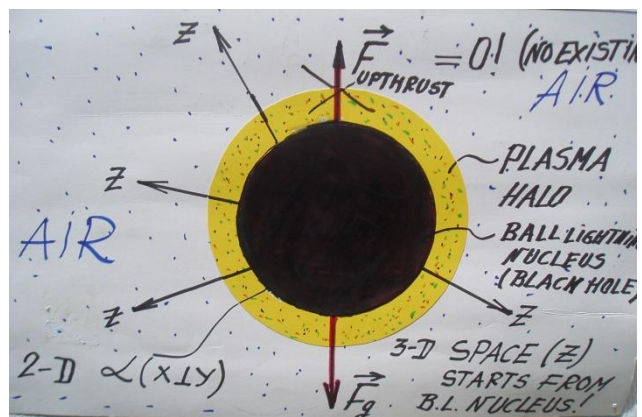 Z
F UPTHRUST = 0! (NO EXISTIN
AIR
Z
AIR
PLASMA
HALO
BALL LIGHTNIN
NUCLEUS
(BLACK HOLE)
Z
Z
2-D ∝(X⊥Y)
Fg
3-D SPACE (Z)
STARTS FROM
B.L. NUCLEUS!